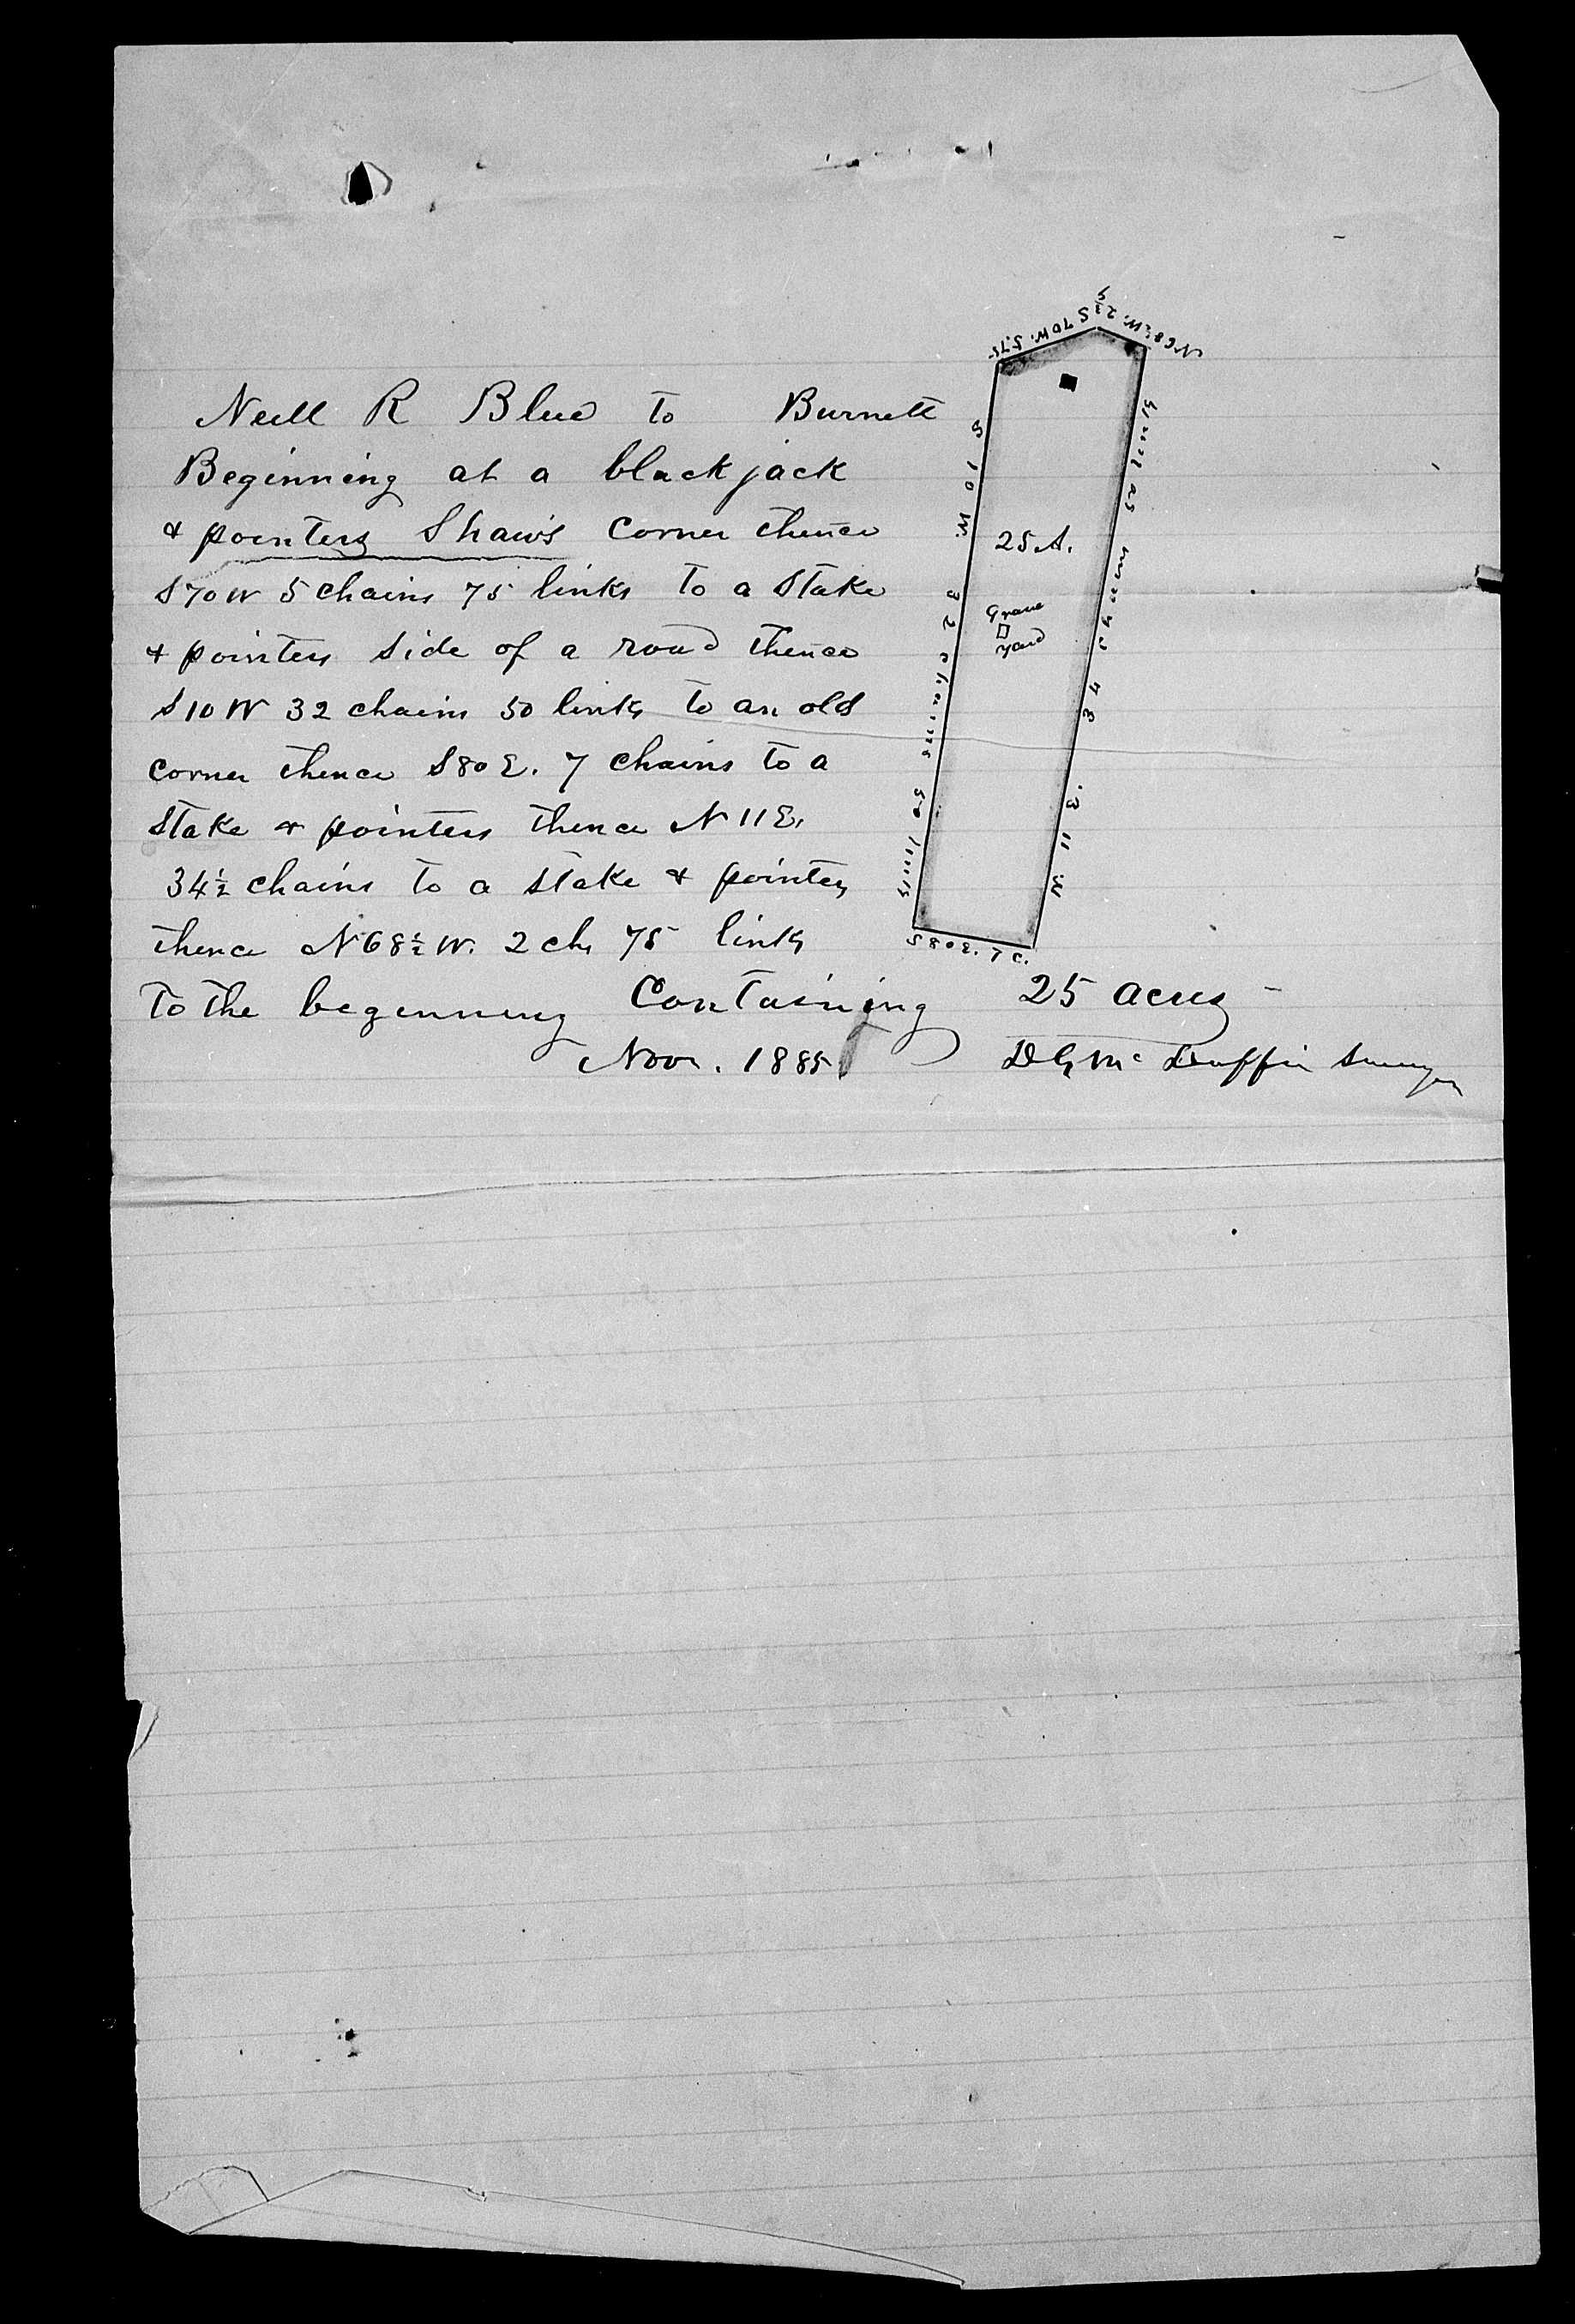 Neill R Blue to Burnett
Beginning at a black jack
& pointers Shaw's corner thence
S 70 W 5 chains 75 links to a Stake
& pointers side of a road thence
S 10 W 32 chains 50 links to an old
corner thence S 80 E. 7 chains to a
Stake & pointers thence N 11 E.
34½ chains to a stake & pointers
thence N 68½ W. 2 chs 75 links
To the beginning Containing 25 acres
Nov. 1885 D G McDuffie Surveyor
S 70 W. 5.75
N 68½ W. 2¾
S 10 W. 32 chains 50 links
25 A.
Grave
Yard
N 11 E. 34 chains 50 links
S 80 E. 7 C.